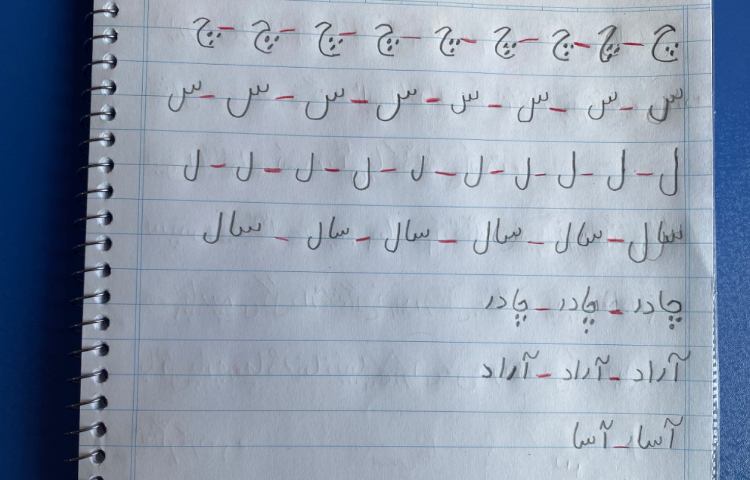 چ - چ - چ - چ - چ - چ - چ - چ - چ
س - س - س - س - س - س - س - س
ل - ل - ل - ل - ل - ل - ل - ل - ل - ل
سال - سال - سال - سال - سال - سال
چادر - چادر - چادر
آراد - آراد - آراد
آسا - آسا